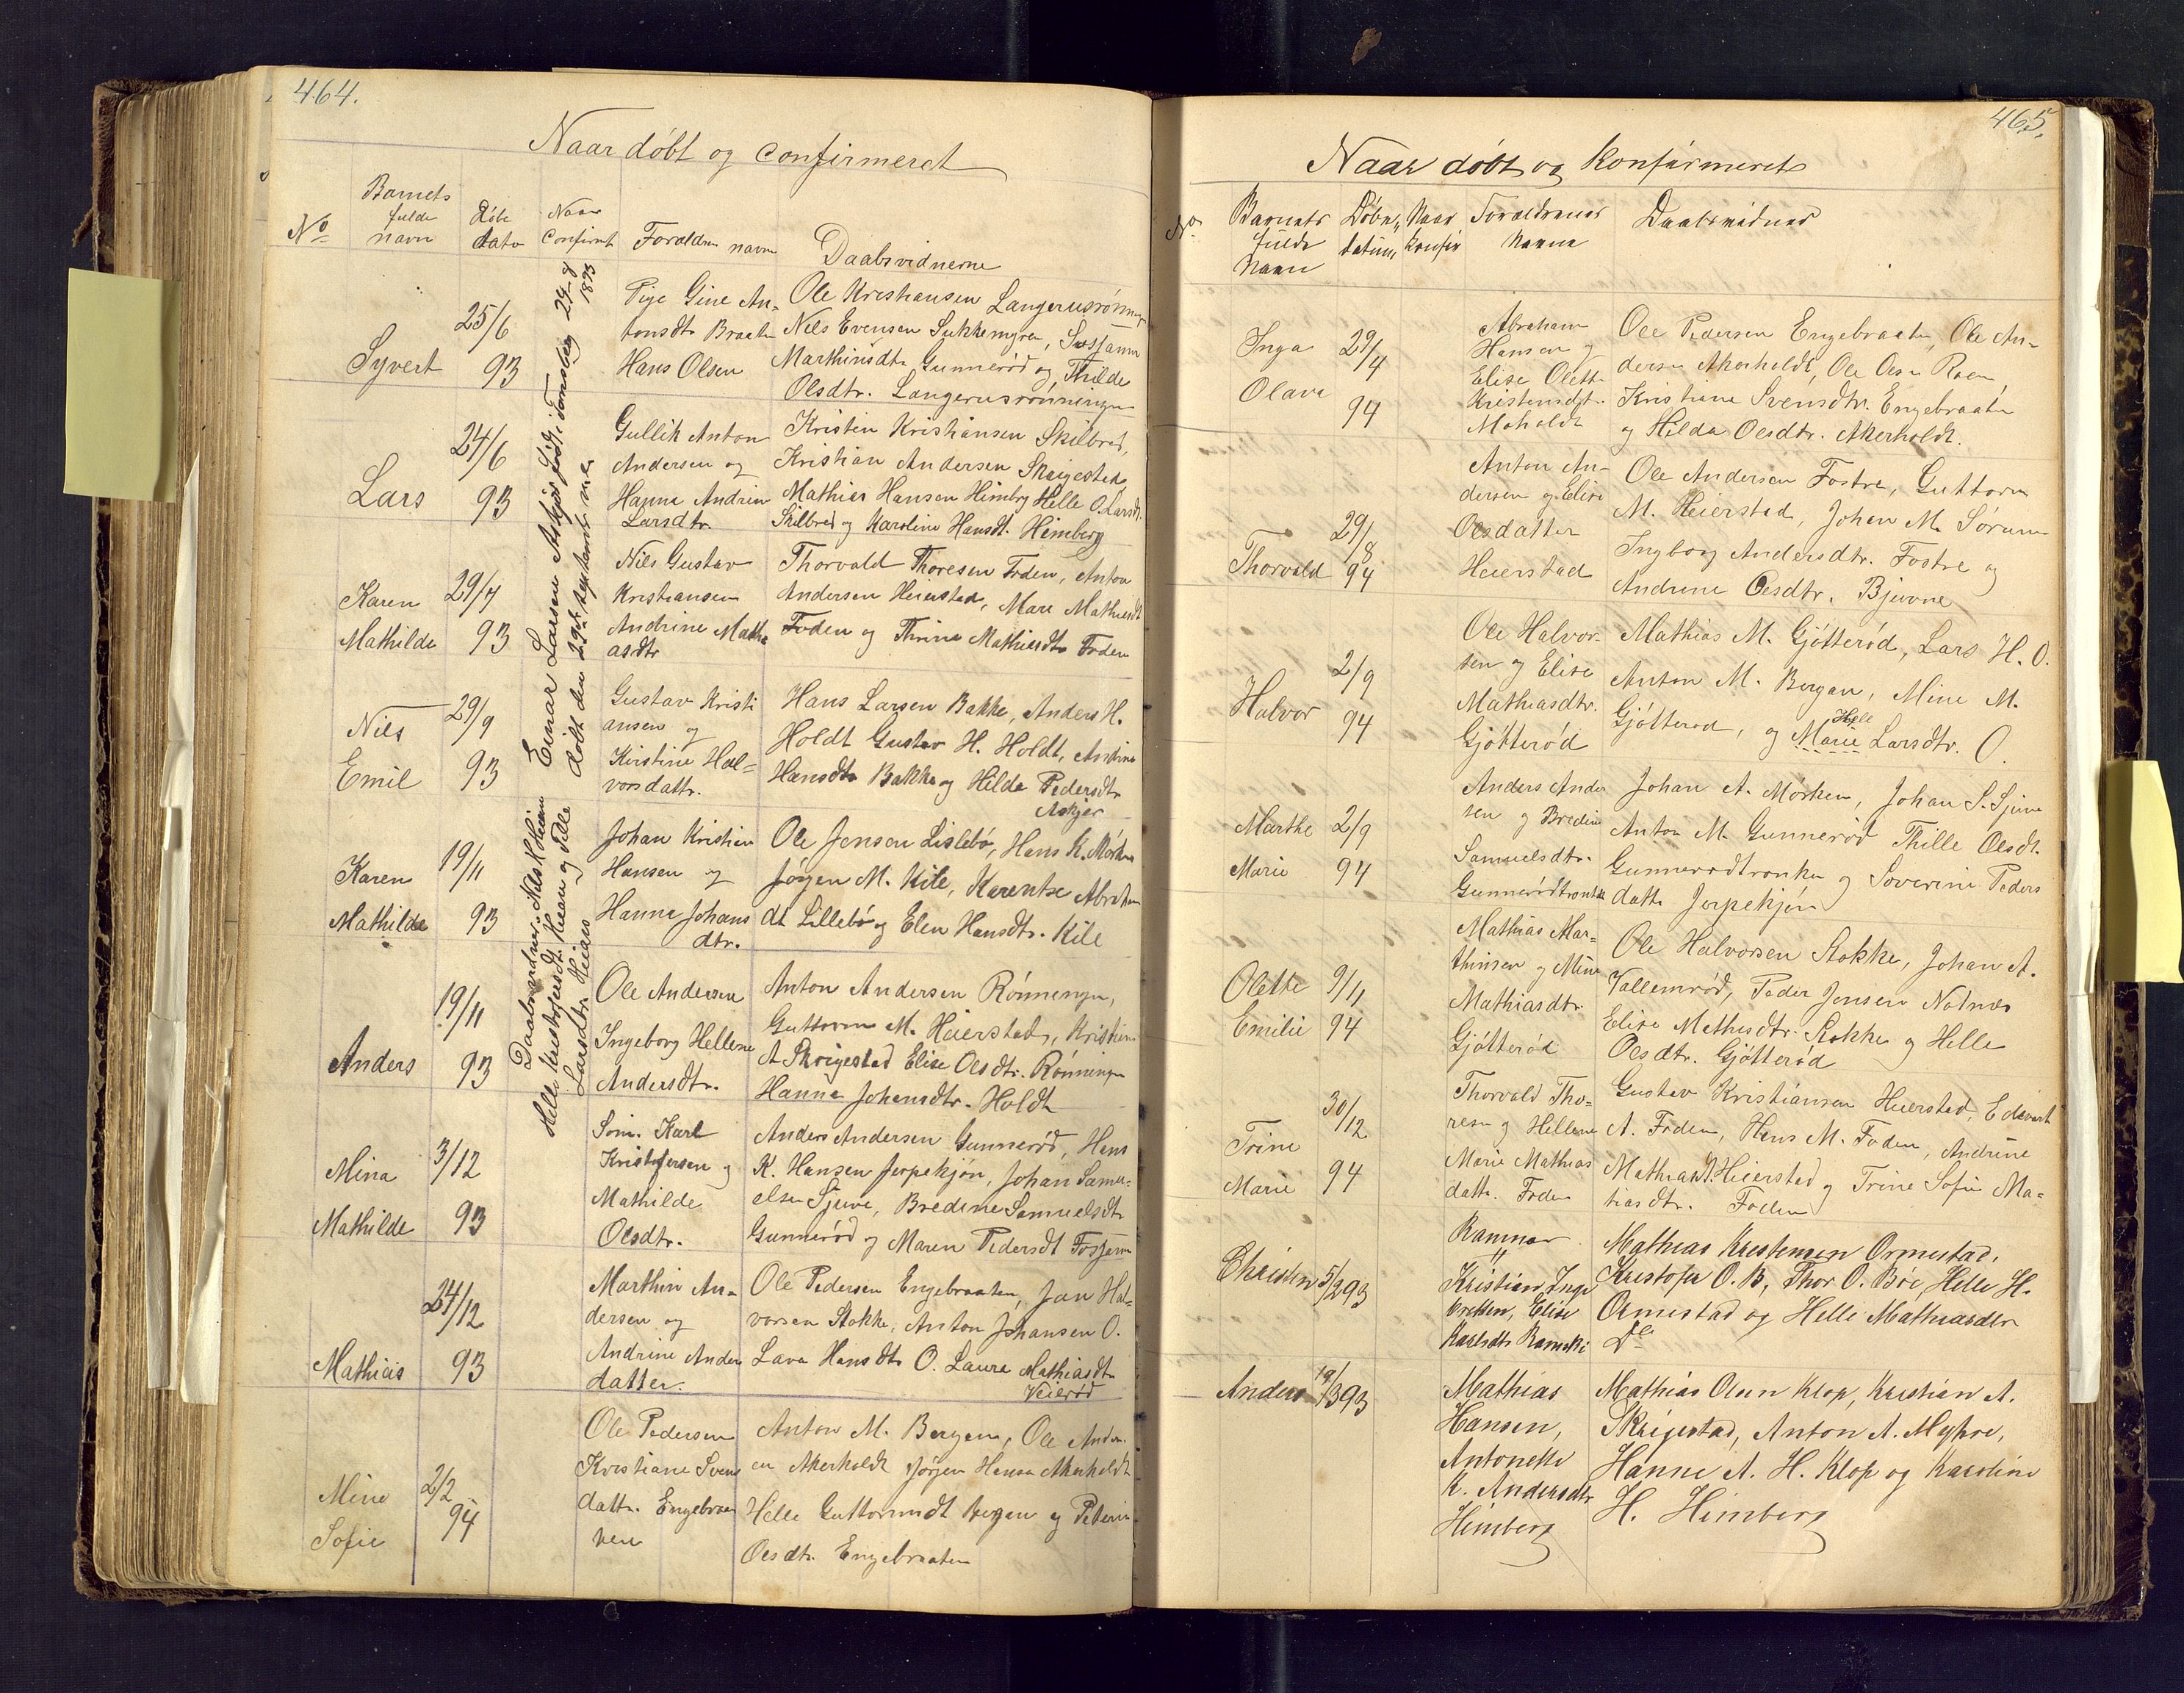 464.
Naar döbt og confirmeret
No
Barnets
fulde
navn
Döbe
dato
Naar
Confirmt
Foraldrn navn
Daabsvidnerne
Syvert
25/6
93
Pige Gine An-
tonsdtr Braatn
Hans Olsen
Ole Kristiansen Langerusrönning
Nils Evensen Sukkemyra,
Marthinsdtr Gunneröd og Thilde
Olsdtr. Langerusrönningen
Lars
24/6
93
Gullik Anton
Andersen og
Hanna Andrin
Larsdtr.
Kristen Kristiansen Skilbred,
Kristian Andersen Skeigestad,
Mathias Hansen Himberg Helle O. Larsdt.
Skilbred og Karoline Hansdt. Himberg
Karen
Mathilde
29/7
93
Nils Gustav
Kristiansen
Andrine Mathi
asdtr
Thorvald Thoresen Foden, Anton
Andersen Heierstad, Mare Mathiesdt
Foden og Thrine Mathiesdtr Foden
Nils
Emil
29/9
93
Gustav Kristi
ansen og
Kirstine Hal-
vorsdattr.
Hans Larsen Bakke, Anders H.
Holdt Gustav H. Holdt, Andrine
Hansdtr Bakke og Hilda Pedersdtr
Askjer
Karen
Mathilde
19/11
93
Johan Kristian
Hansen og
Hanna Johans
dtr.
Ole Jensen Lislebö, Hans K. Mörken
Jörgen M. Kile, Karentse Abraham
dt Lillebö og Elen Hansdtr. Kile
Anders
19/11
93
Ole Andersen
Ingeborg Hellene
Andersdtr.
Anton Andersen Rönningen,
Guttorm M. Heierstad, Kristian
A Skeigestad Elise Olsdtr. Rönningen
Hanna Johansdtr. Holdt
Mina
Mathilde
3/12
93
Som. Karl
Kristofersen og
Mathilde
Olsdtr.
Anders Andersen Gunneröd, Hans
K. Hansen Jerpekjön, Johan Samu-
elsen Sjuve, Bredine Samuelsdtr
Gunneröd og Maren Pedersdt
Mathias
24/12
93
Marthin An-
dersen og
Andrine Anders
datter.
Ole Pedersen Engebraaten, Jan Hal-
vorsen Stokke, Anton Johansen O.
Lava Hansdtr O. Laura Mathiasdtr
Veieröd
Mine
Sofie
2/2
94
Ole Pedersen
Kristiane Svens
dattr. Engebraa
ten
Anton M. Bergan, Ole Anders
en Akerholdt Jörgen Hansen Akerholdt
Helle Guttormsdt Bergan og Peterin
Olsdtr. Engebraaten
Einar Larsen Askjer födt i Tönsberg 29-8
1893
döbt den 29de September s. m.
Daabsvidner: Nils K Heian
Helle Kristofersdt. Heian og Tille
Larsdtr. Heiaas
465.
Naar döbt og Konfirmeret
No
Barnets
fulde
Navn
Döbn,
datum,
Naar
Konfir
Foraldrenes
Navne
Daabsvidner
Inga
Olava
29/4
94
Abraham
Hansen og
Elise Olette
Kristensdt.
Moholdt
Ole Pedersen Engebraaten, Ole An-
dersen Akerholdt, Ole Olsen Roen,
Kristiane Svensdtr. Engebraaten
og Hilda Olsdtr. Akerholdt.
Thorvald
29/8
94
Anton An-
dersen og Elise
Olsdatter
Heierstad
Ole Andersen Fostre, Guttorm
M. Heierstad, Johan M. Sörum
Ingborg Andersdtr. Fostre og
Andrine Olsdtr. Bjuvne
Halvor
2/9
94
Ole Halvor-
sen og Elise
Mathiasdtr.
Gjötteröd
Mathias M. Gjötteröd, Lars H. O.
Anton M. Bergan, Mine M.
Gjötteröd, og Marie Larsdtr. O.
Helle
Marthe
Marie
2/9
94
Anders Ander
sen og Bredine
Samuelsdtr.
Gunnerödtronka
Johan A. Mörken, Johan S. Sjuve
Anton M. Gunneröd Thille Olsdt.
Gunnerödtronka og Soverine Peders
dattr Jerpekjön
Olette
Emilie
9/11
94
Mathias Mar-
thinsen og Mine
Mathiasdtr.
Gjötteröd
Ole Halvorsen Stokke, Johan A.
Vallemröd, Peder Jensen Notnæs
Elise Mathisdtr. Stokke og Helle
Olsdtr. Gjötteröd
Trine
Marie
30/12
94
Thorvald Tho-
resen og Hellene
Marie Mathias
dattr. Foden
Gustav Kristiansen Heierstad, Edevart
A. Foden, Hans M. Foden, Andrine
Mathiasdt. Heierstad og Trine Sofie Ma-
thiasdtr. Foden
Christen
5/2 93
Ramnar
Kristian Inge
bretsen, Elise
Karlsdtr
Mathias Kristensen Ormestad,
Kristofer O. B, Thor O. Böe, Helle H.
Ormestad og Helle Mathiasdtr
Do
Anders
19/3 93
Mathias
Hansen,
Antonette
K. Andersdtr
Himberg
Mathias Olsen Klop, Kristian A.
Skeigestad, Anton A. Myhre,
Hanne A. H. Klop og Karoline
H. Himberg